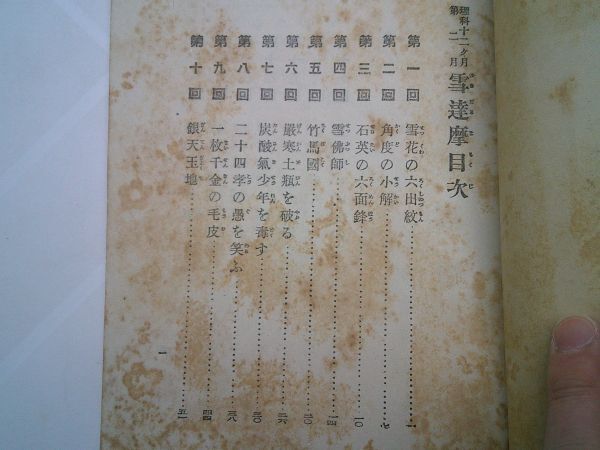 理科十二ケ月
第二月
雪達摩目次
第一回 雪花の六出紋 一
第二回 角度の小解 七
第三回 石英の六面鋒 一〇
第四回 雪佛師 一四
第五回 竹馬國 二〇
第六回 嚴寒土瓶を破る 二六
第七回 炭酸氣少年を毒す 三〇
第八回 二十四孝の愚を笑ふ 三八
第九回 一枚千金の毛皮 四四
第十回 銀天玉地 五一
一